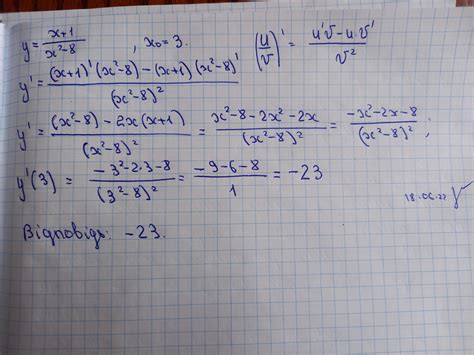 y = (x+1)/(x²-8) , x₀ = 3. (u/v)' = (u'v - u·v')/v²
y' = ((x+1)'(x²-8) - (x+1)(x²-8)')/(x²-8)²
y' = ((x²-8) - 2x(x+1))/(x²-8)² = (x²-8-2x²-2x)/(x²-8)² = (-x²-2x-8)/(x²-8)² ;
y'(3) = (-3²-2·3-8)/(3²-8)² = (-9-6-8)/1 = -23
Відповідь: -23.